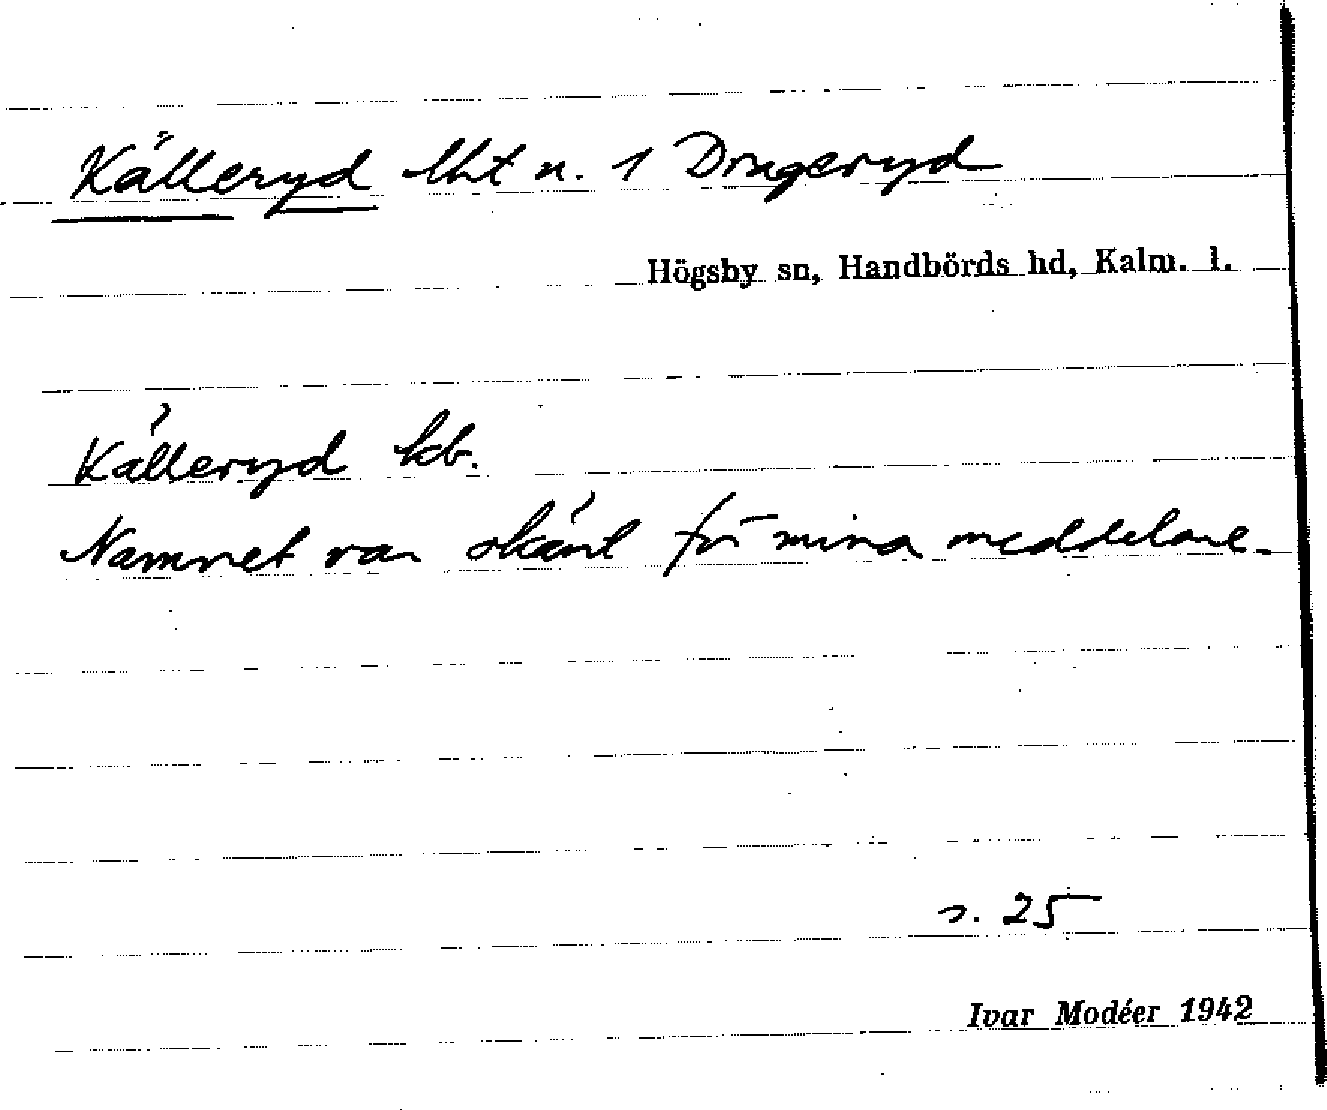 Källeryd lht u. 1 Drageryd
Högsby sn, Handbörds hd, Kalm. l.
Källeryd kb.
Namnet var okänt för mina meddelare.
s. 25
Ivar Modéer 1942